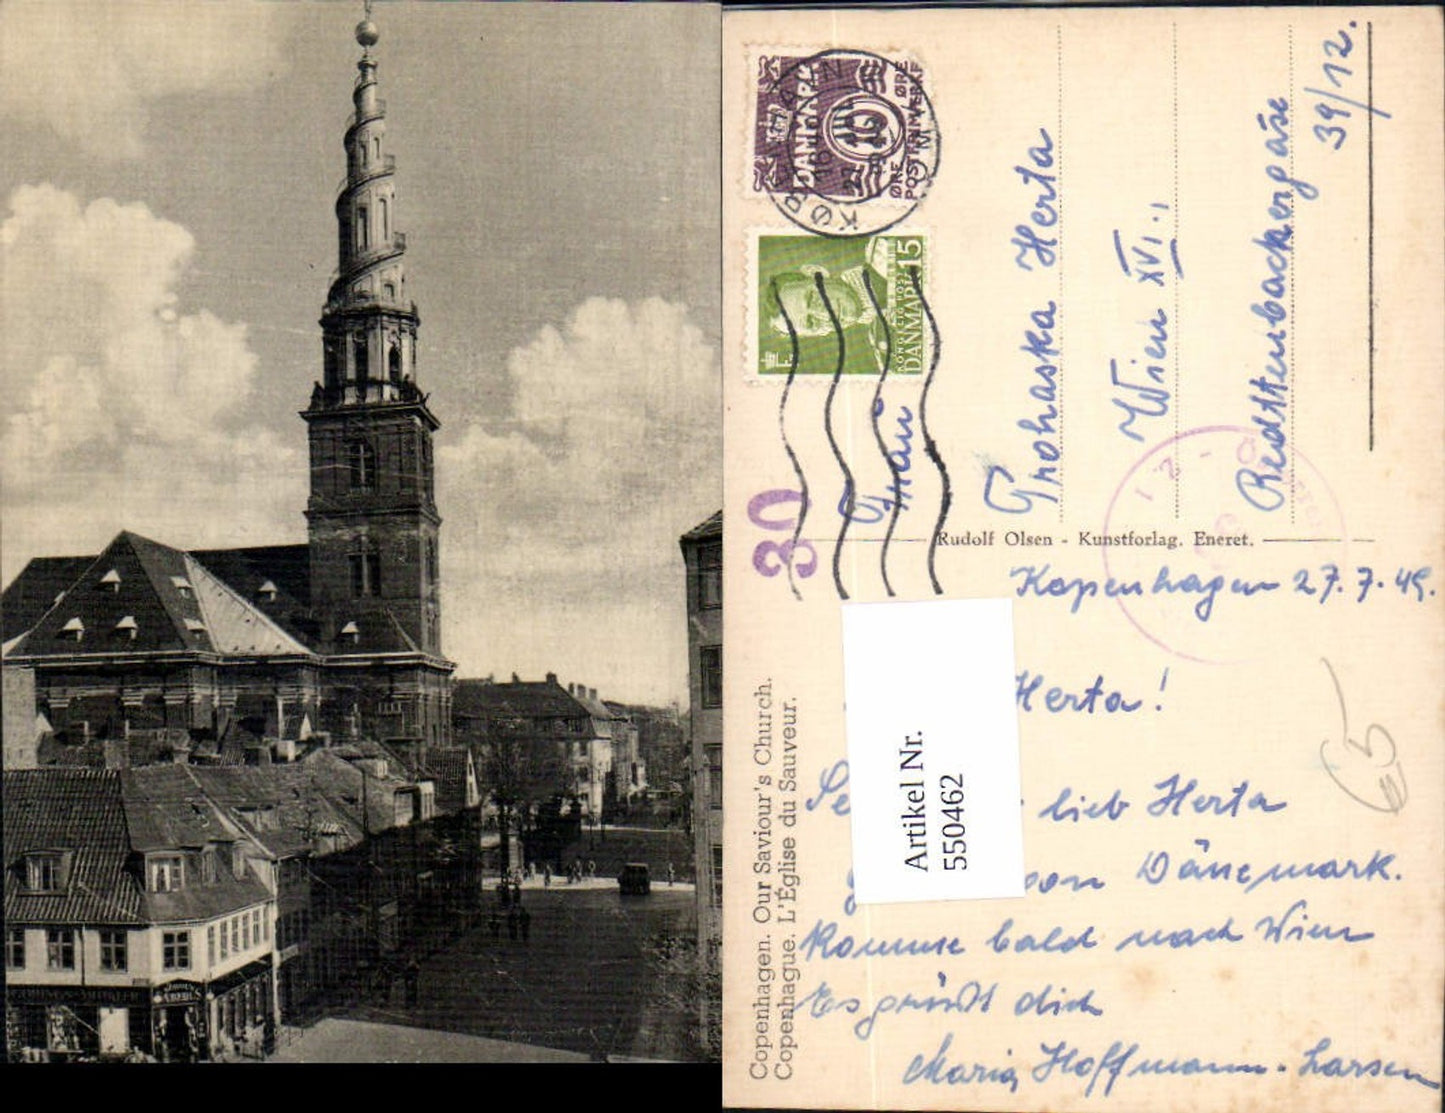 KØBENHAVN
DANMARK
ØRE
ØRE
POSTFRIMÆRKE
15
DANMARK
30
Frau
Grohaska Herta
Wien XVI.,
Redttenbackergåse
39/12.
Rudolf Olsen - Kunstforlag. Eneret.
Kopenhagen 27.7.49.
Herta!
lieb Herta
von Dänemark.
Komme bald nach Wien
Es grüßt dich
Maria Hoffmann-Larsen
65
Artikel Nr.
550462
Copenhagen. Our Saviour's Church.
Copenhague. L'Église du Sauveur.